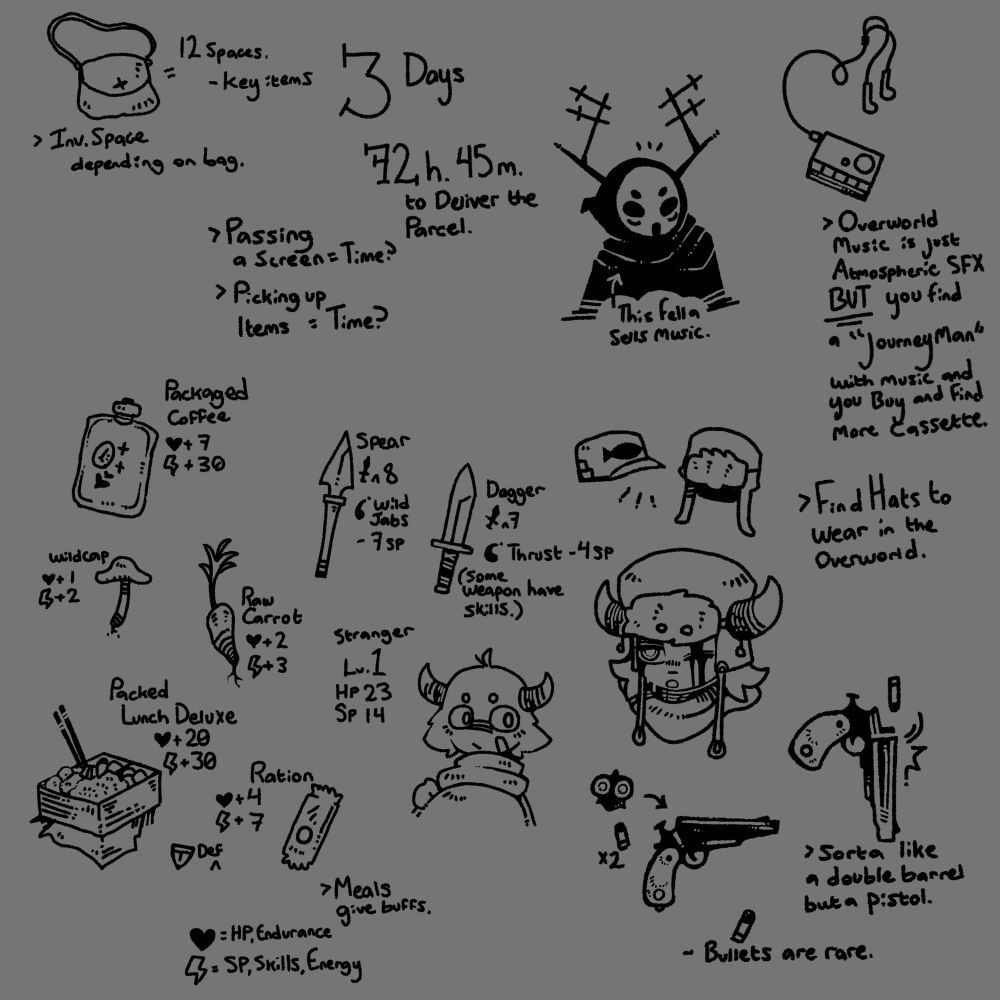 12 Spaces.
- Key items
> Inv. Space
depending on bag.
3 Days
72 h. 45 m.
to Deliver the
Parcel.
> Passing
a Screen = Time?
> Picking up
Items = Time?
This Fella
Sells Music.
> Overworld
Music is just
Atmospheric SFX
BUT you find
a "JourneyMan"
with music and
you Buy and Find
More Cassette.
Packaged
Coffee
♥+7
+30
Spear
^8
Wild
Jabs
- 7 SP
Dagger
^7
Thrust -4 SP
(Some
weapon have
skills.)
> Find Hats to
Wear in the
Overworld.
Wildcap
♥+1
+2
Raw
Carrot
♥+2
+3
Stranger
Lv. 1
HP 23
SP 14
Packed
Lunch Deluxe
♥+20
+30
Def
^
Ration
♥+4
+7
> Meals
give buffs.
♥ = HP, Endurance
= SP, Skills, Energy
x2
> Sorta like
a double barrel
but a pistol.
- Bullets are rare.